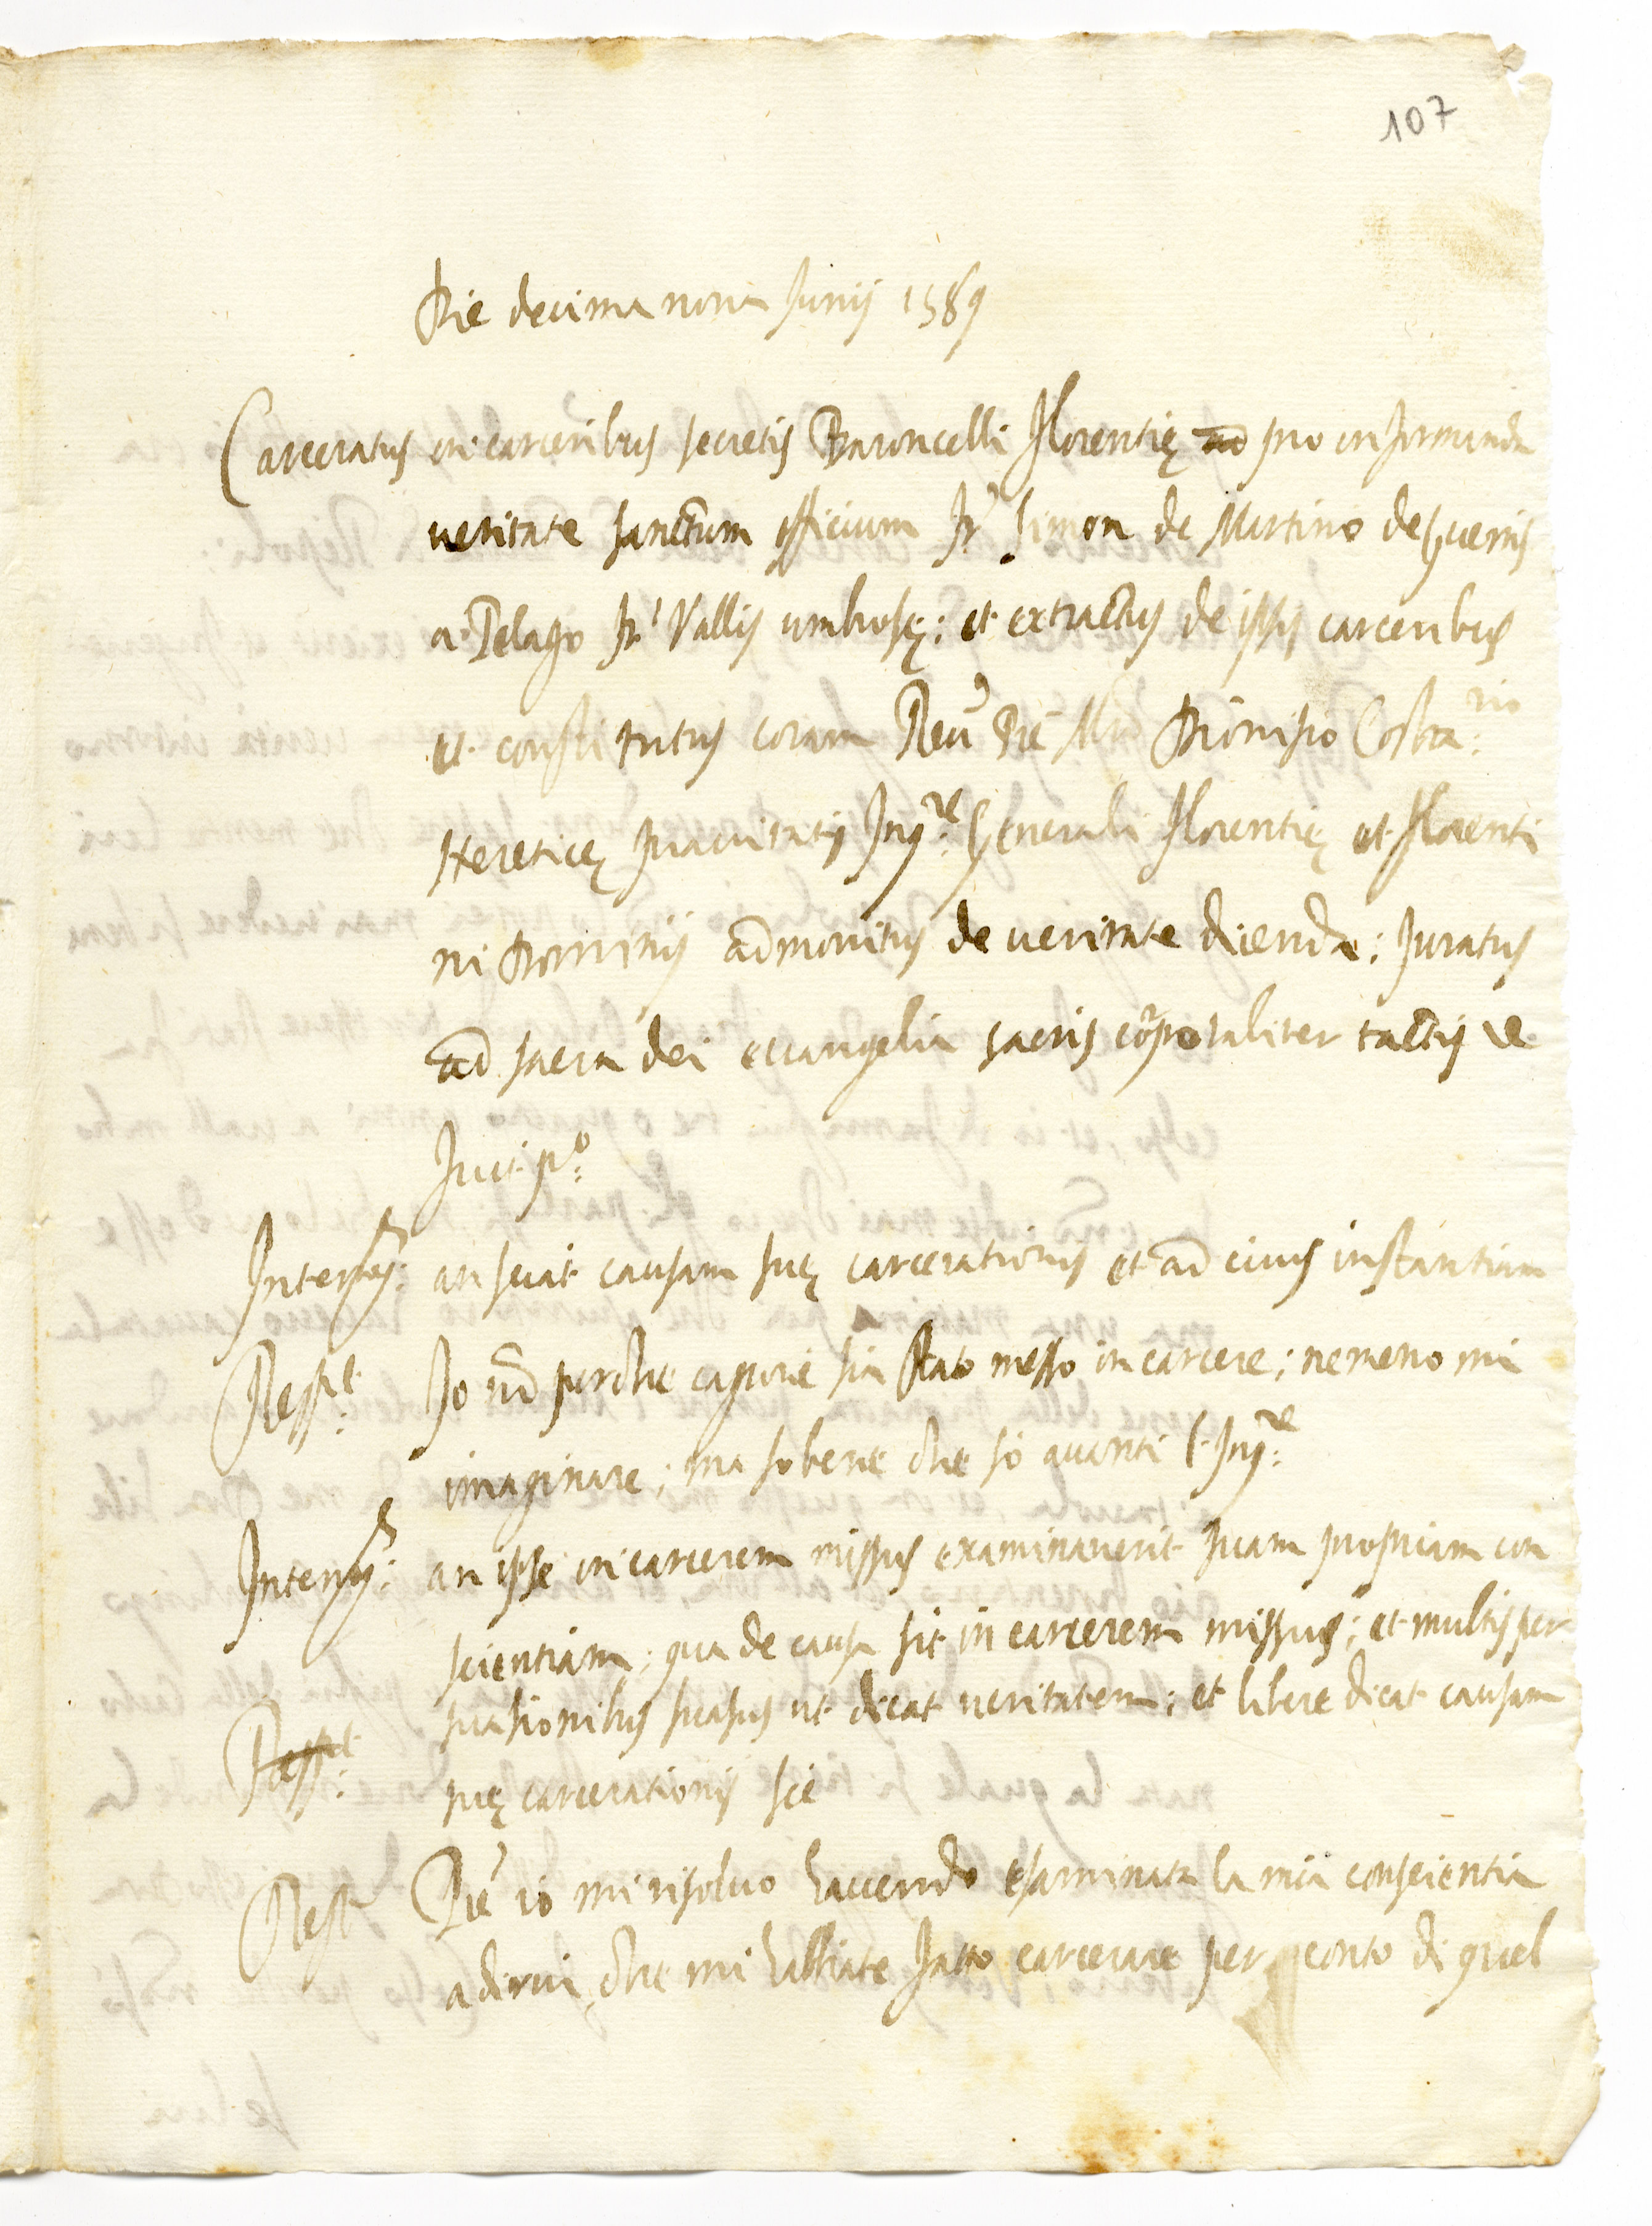 107
Die decima nona Junij 1589
Carceratus in carceribus secretis Baroncelli Florentię ad pro informanda
veritate sanctum officium fr. Simon de Martino de Guerris
a Pelago fr. Vallis umbrosę; et extractus de ipsis carceribus
et constitutus coram Reu. Pre Mro Dionisio Costa.rio
Hereticę prauitatis Inq.re Generali Florentię et Florenti
ni Dominij admonitus de ueritate dicenda; Juratus
ad sacra dei euangelia sacris corporaliter tactis
fuit p.o
Interrog. an sciat causam suę carcerationis et ad eius instantiam
Resp.t Io nō so perche cagione sia stato messo in carcere; ne meno mi
imaginare; ma so bene che so auanti l Inq.re
Interrog. an ipse in carcerem missus examinauerit suam propriam con
scientiam; qua de causa sit in carcerem missus; et multis per
suasionibus suasus ut dicat ueritatem; et libere dicat causam
Resp.t
suę carcerationis
Resp.t Pre io mi risoluo hauendo esaminata la mia conscientia
a dirui, che mi habbiate fatto carcerare per conto di quel